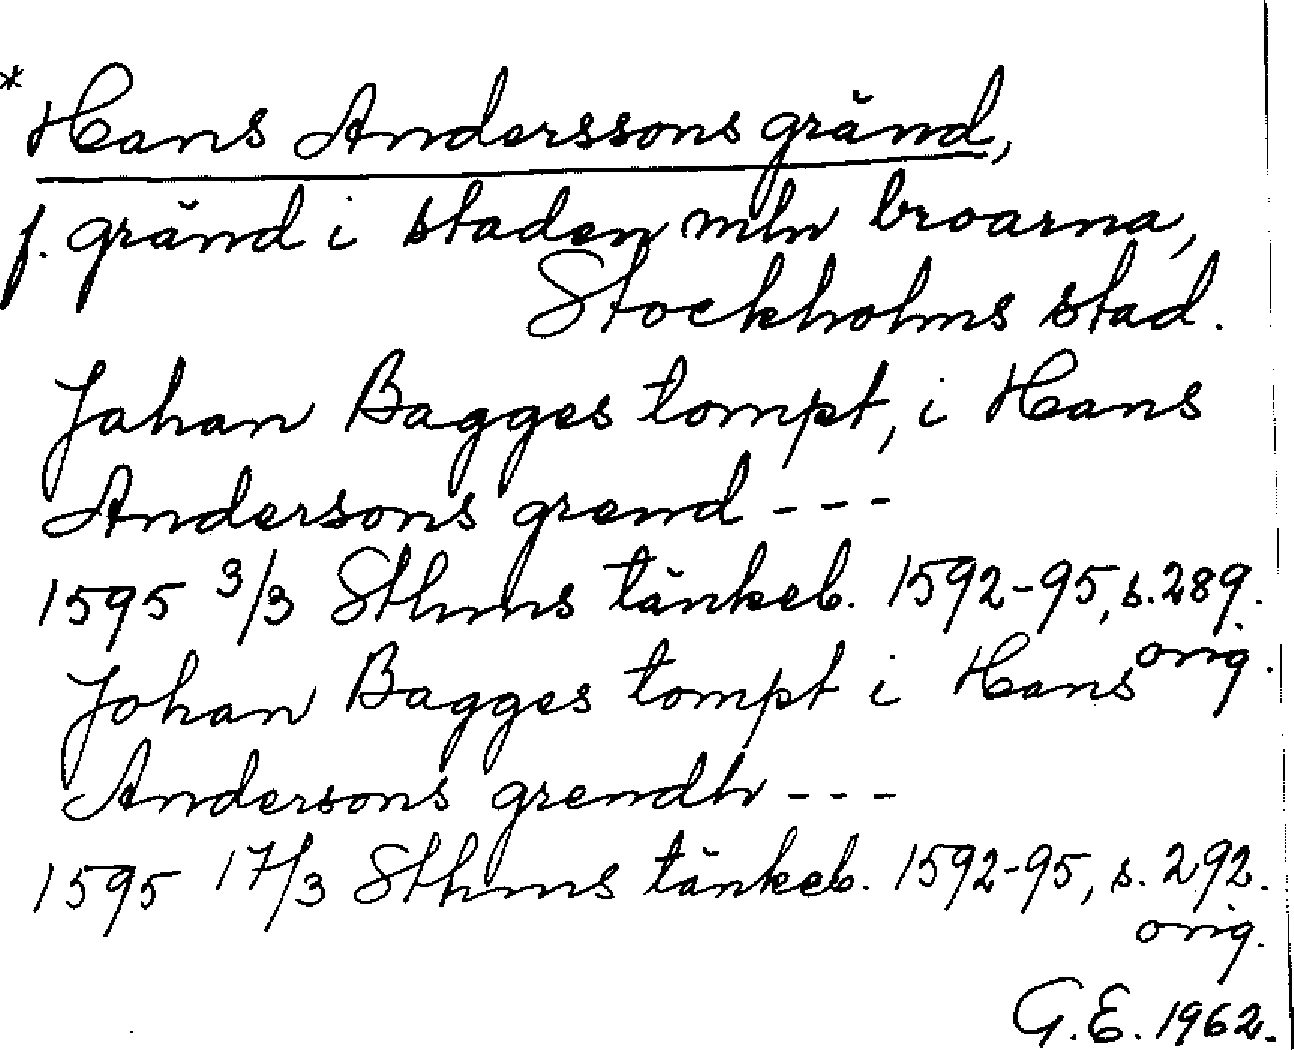 * Hans Anderssons gränd,
f. gränd i staden mln broarna,
Stockholms stad.
Johan Bagges tompt, i Hans
Andersons grend ---
1595 3/3 Sthms tänkeb. 1592-95, s. 289.
orig.
Johan Bagges tompt i Hans
Andersons grendh ---
1595 17/3 Sthms tänkeb. 1592-95, s. 292.
orig.
G.E. 1962.